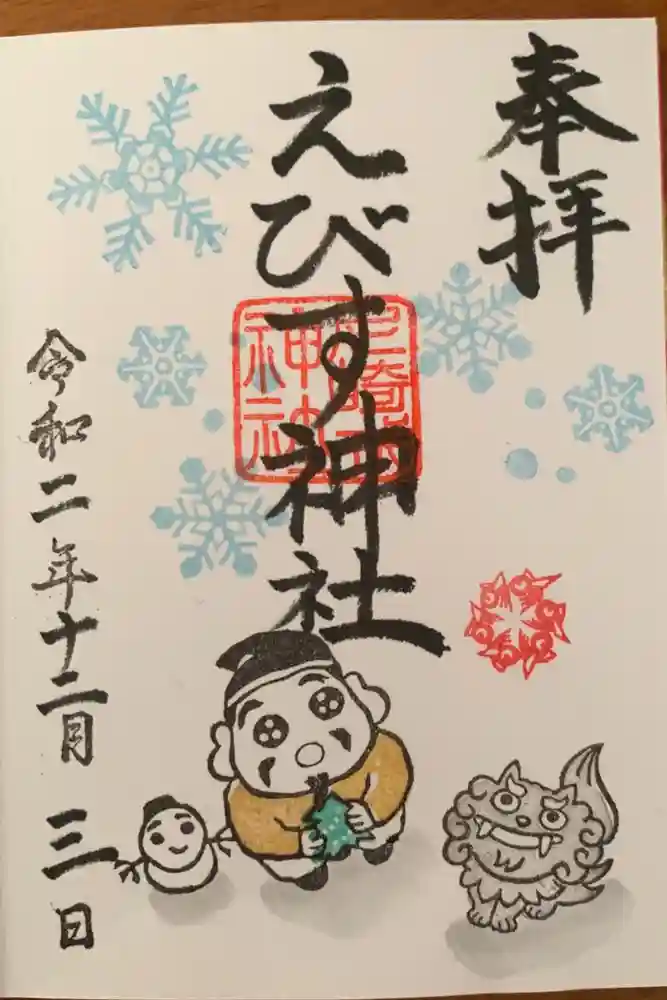 奉拝
えびす神社
令和二年十二月三日